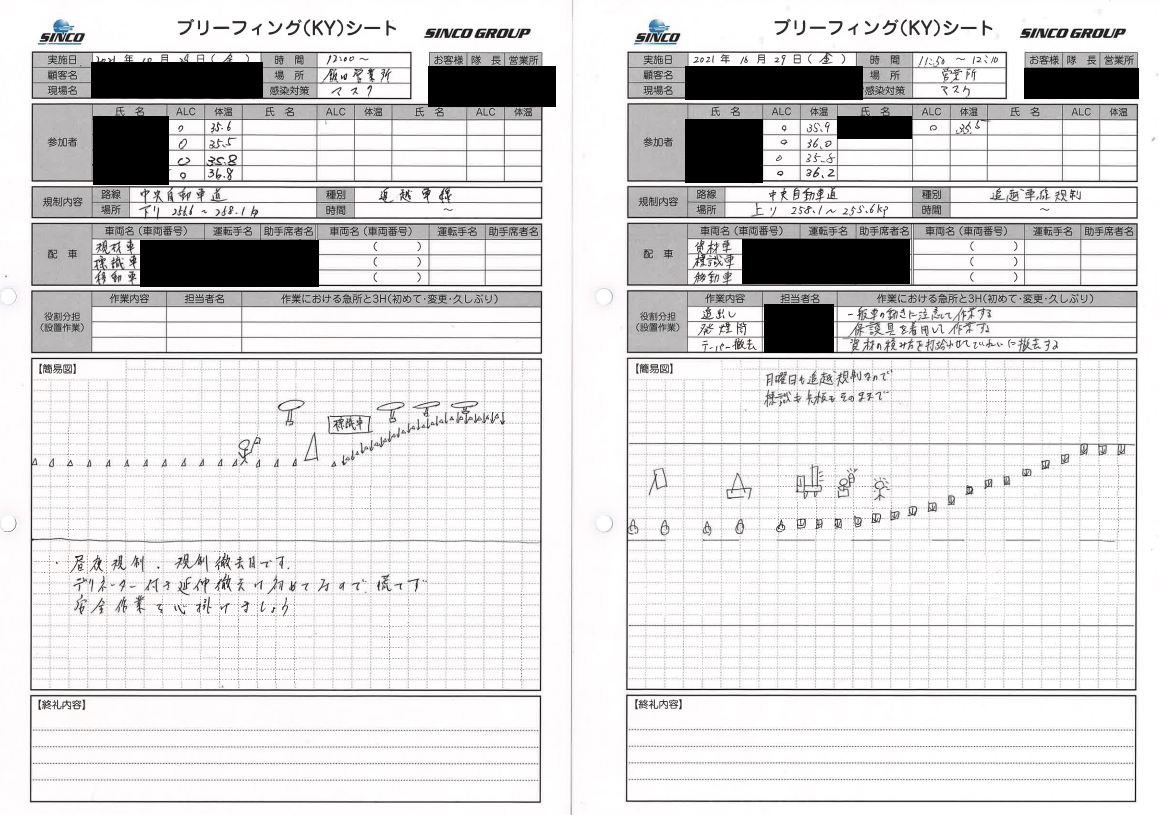 SINCO
ブリーフィング(KY)シート
SINCO GROUP
実施日 2021年10月29日(金) 時間 12:00～
顧客名 場所 飯田営業所
現場名 感染対策 マスク
お客様 隊長 営業所
参加者
氏名 ALC 体温 氏名 ALC 体温 氏名 ALC 体温
0 35.6
0 35.5
0 35.8
0 36.8
規制内容
路線 中央自動車道 種別 追越車線
場所 下り ～ 時間 ～
配車
車両名(車両番号) 運転手名 助手席者名 車両名(車両番号) 運転手名 助手席者名
規材車 ( )
標識車 ( )
移動車 ( )
役割分担
(設置作業)
作業内容 担当者名 作業における急所と3H(初めて・変更・久しぶり)
【簡易図】
標識車
・昼夜規制、規制撤去日です。
デリネーター付き延伸撤去は初めてなので、慌てず
安全作業を心掛けましょう
【終礼内容】
SINCO
ブリーフィング(KY)シート
SINCO GROUP
実施日 2021年10月29日(金) 時間 11:50～12:10
顧客名 場所 営業所
現場名 感染対策 マスク
お客様 隊長 営業所
参加者
氏名 ALC 体温 氏名 ALC 体温 氏名 ALC 体温
0 35.9 0 36.5
0 36.0
0 35.8
0 36.2
規制内容
路線 中央自動車道 種別 追越車線規制
場所 上り 258.1～255.6kp 時間 ～
配車
車両名(車両番号) 運転手名 助手席者名 車両名(車両番号) 運転手名 助手席者名
資材車 ( )
標識車 ( )
移動車 ( )
役割分担
(設置作業)
作業内容 担当者名 作業における急所と3H(初めて・変更・久しぶり)
追出し 一般車の動きに注意して作業する
発煙筒 保護具を着用して作業する
テーパー撤去 資材の積み方を打合わせてていねいに撤去する
【簡易図】
月曜日も追越規制なので
標識も矢板もそのままで
【終礼内容】